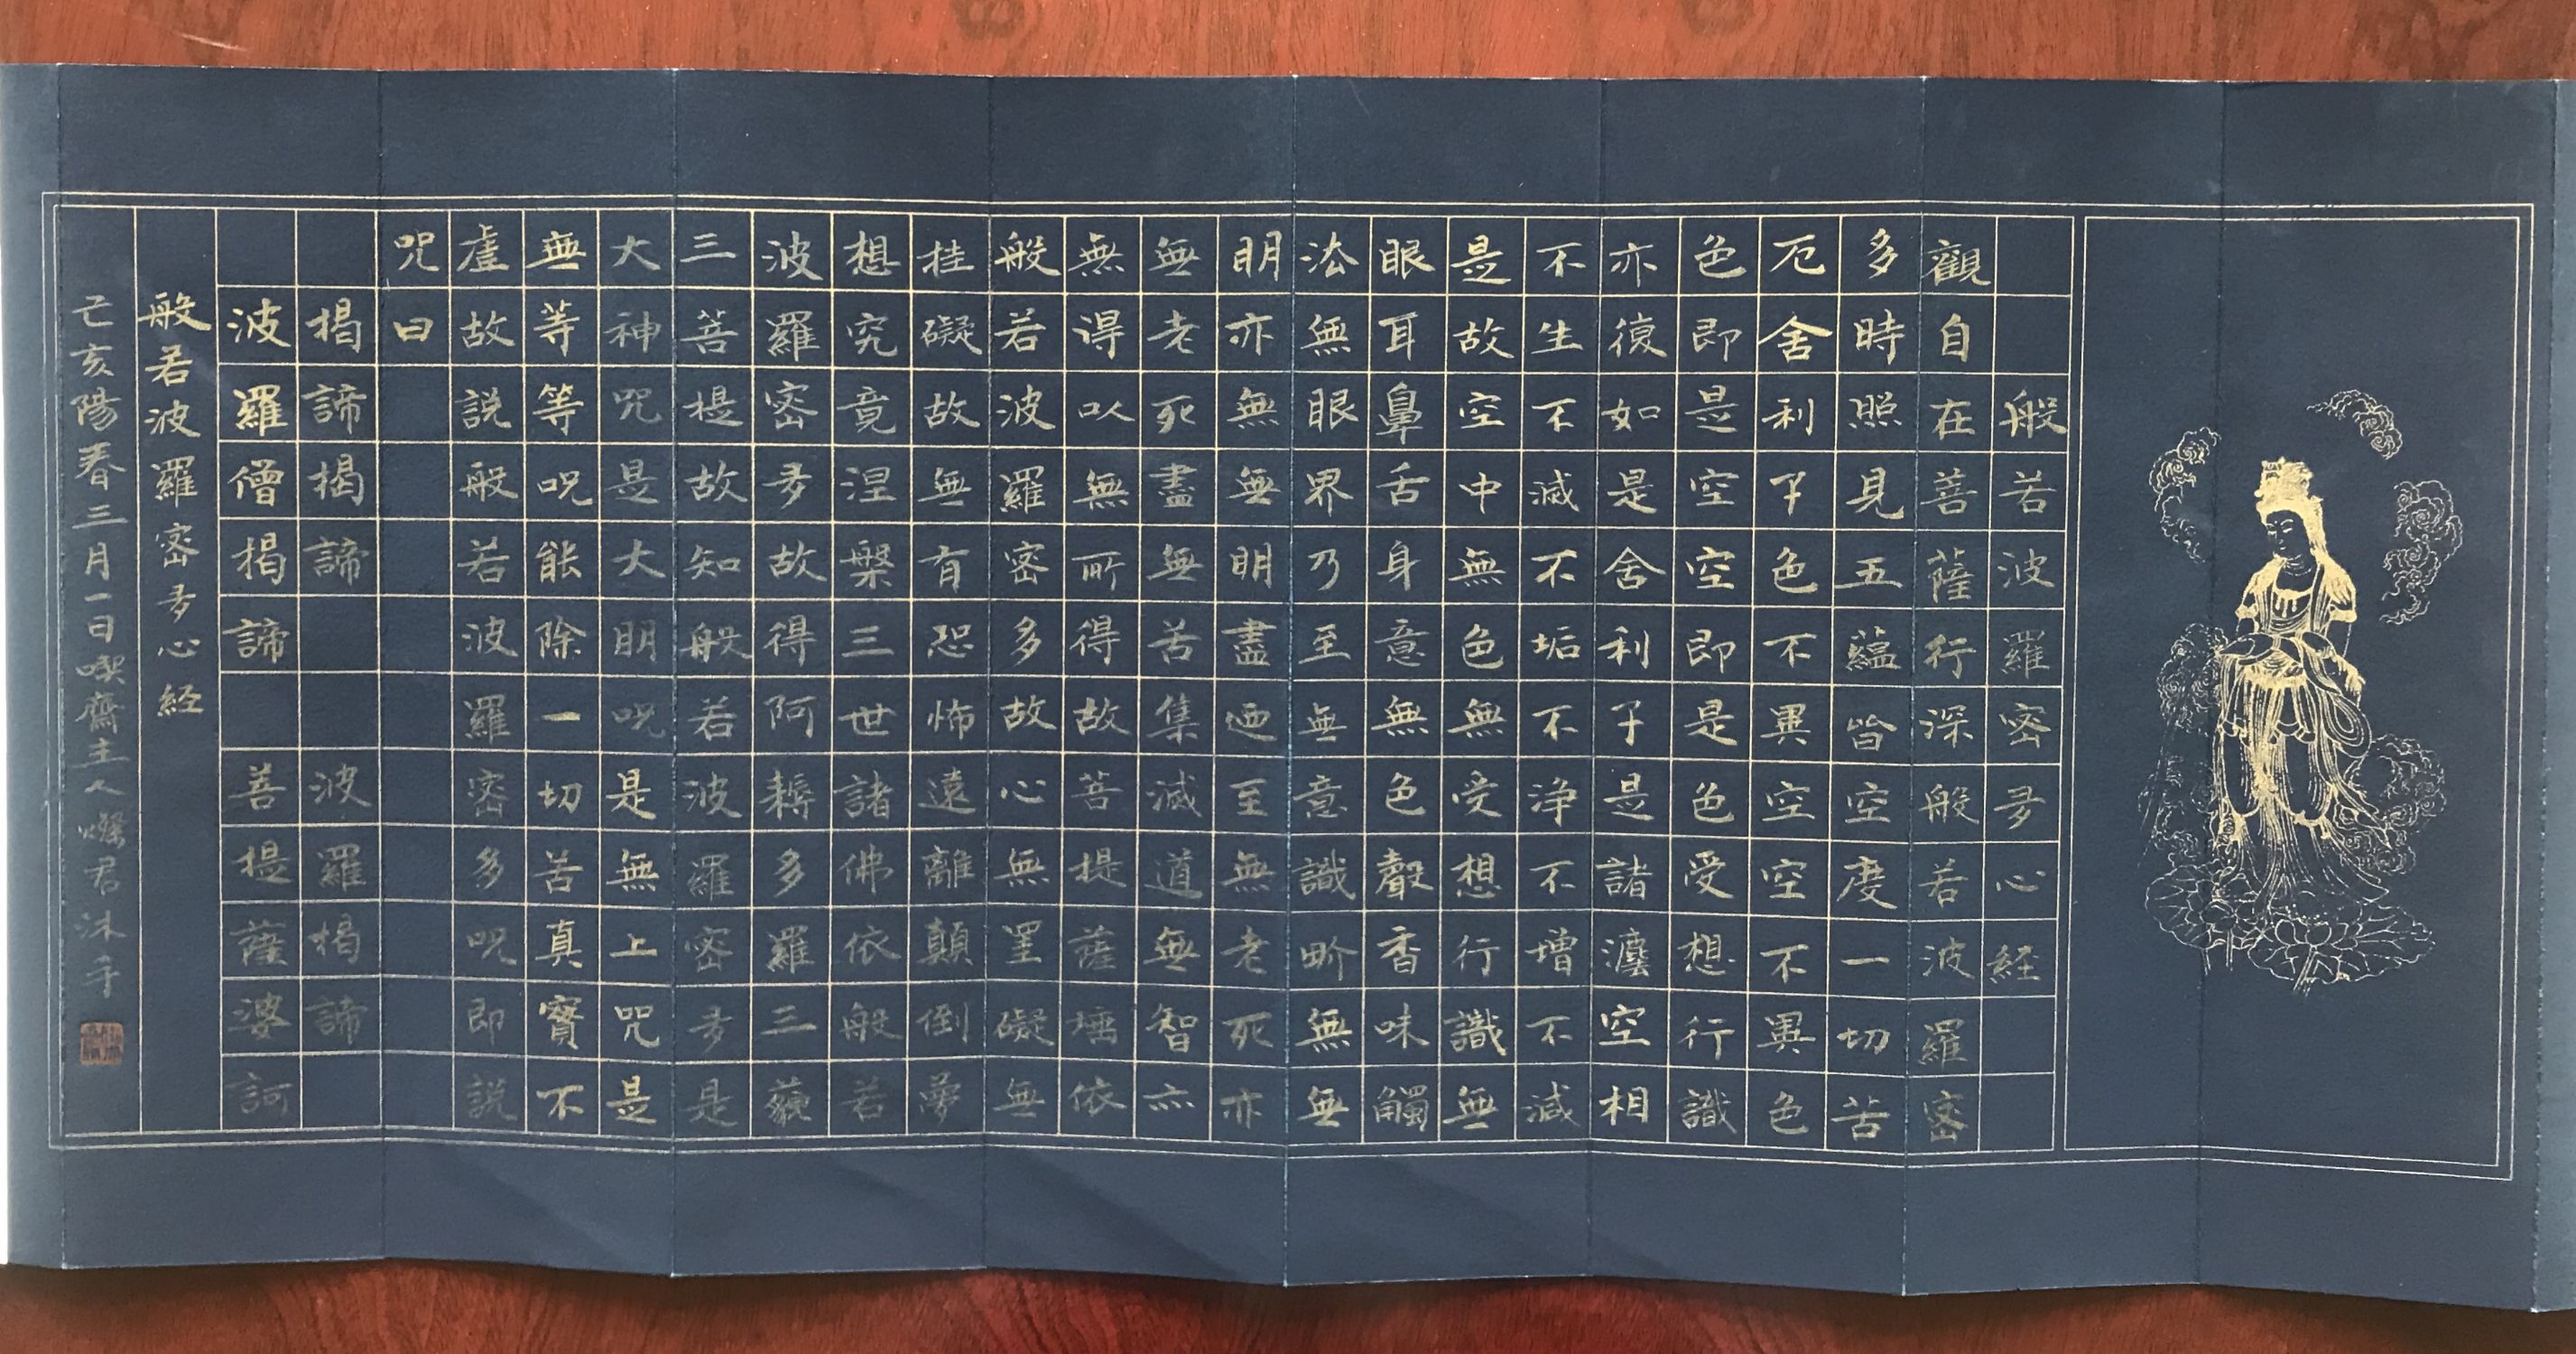 般若波羅密多心経
觀自在菩薩行深般若波羅密
多時照見五蘊皆空度一切苦
厄舍利子色不異空空不異色
色即是空空即是色受想行識
亦復如是舍利子是諸灋空相
不生不滅不垢不淨不增不減
是故空中無色無受想行識無
眼耳鼻舌身意無色聲香味觸
法無眼界乃至無意識界無無
明亦無無明盡迺至無老死亦
無老死盡無苦集滅道無智亦
無得以無所得故菩提薩埵依
般若波羅密多故心無罣礙無
挂礙故無有恐怖遠離顛倒夢
想究竟涅槃三世諸佛依般若
波羅密多故得阿耨多羅三藐
三菩提故知般若波羅密多是
大神咒是大明咒是無上咒是
無等等咒能除一切苦真實不
虛故説般若波羅密多咒即説
咒曰
揭諦揭諦 波羅揭諦
波羅僧揭諦 菩提薩婆訶
般若波羅密多心経
己亥陽春三月一日喫齋主人燦君沐手